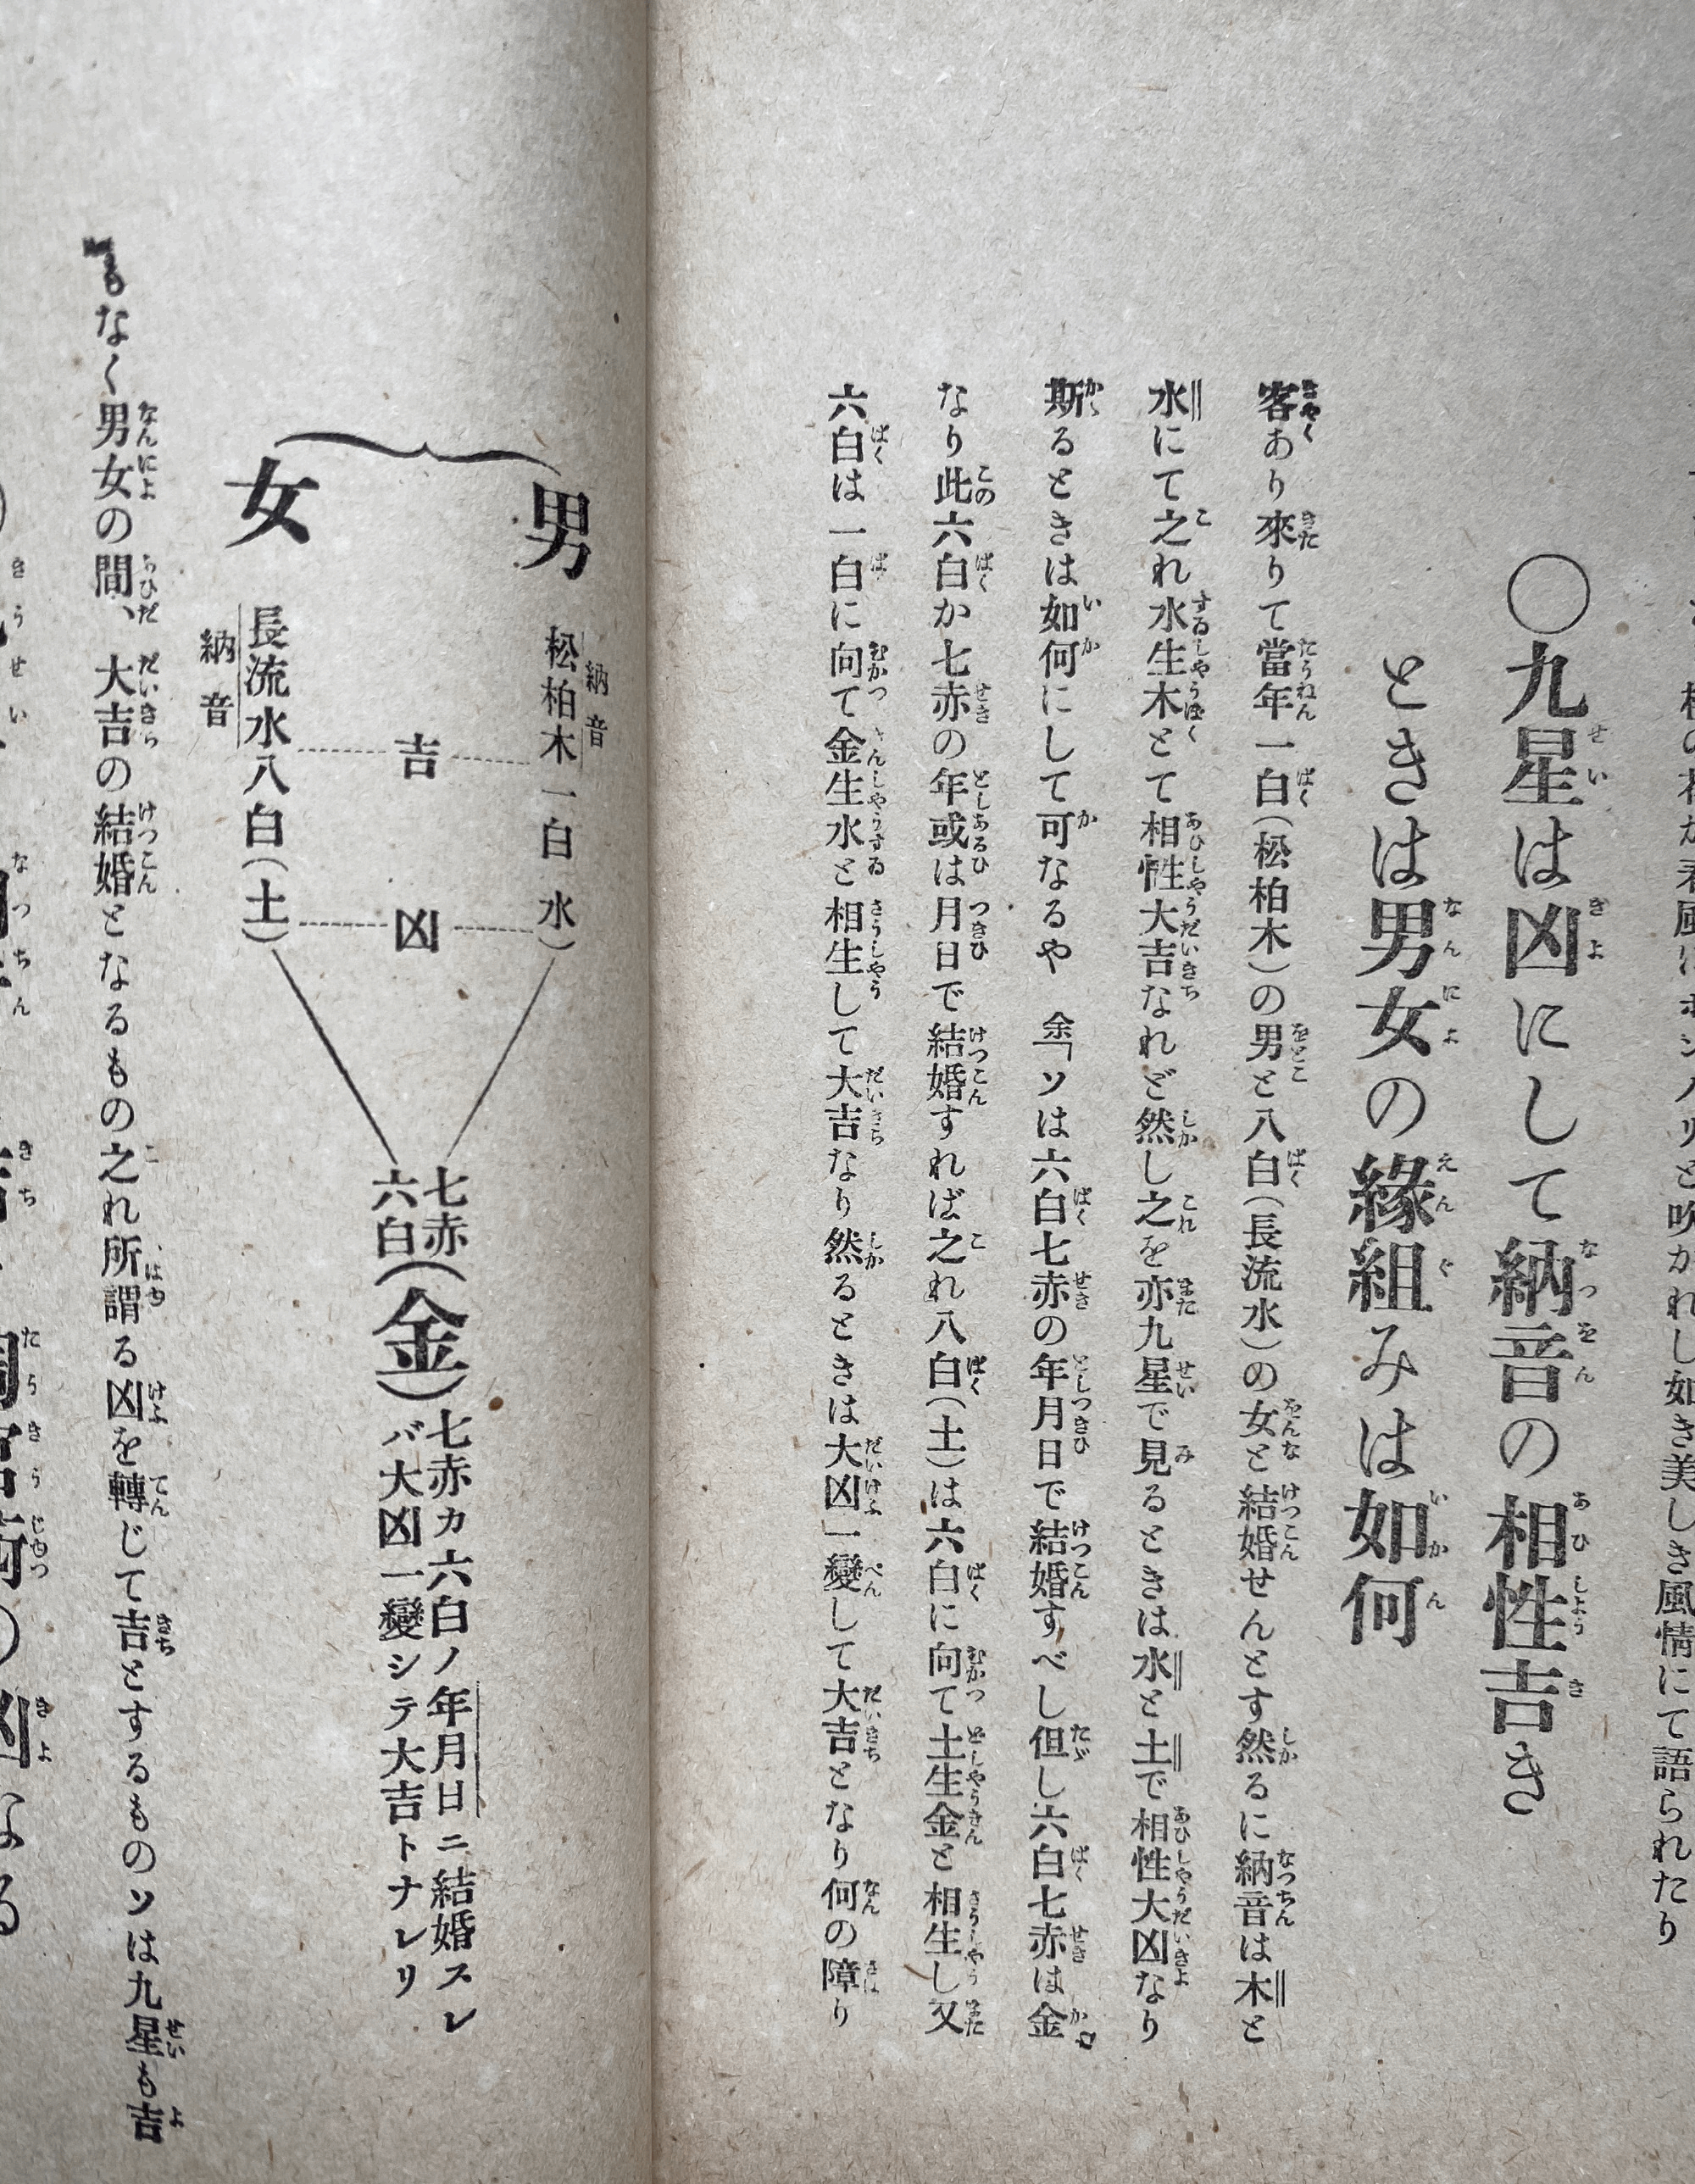 し如き美しき風情にて語られたり
○九星は凶にして納音の相性吉き
ときは男女の緣組みは如何
客あり來りて當年一白(松柏木)の男と八白(長流水)の女と結婚せんとす然るに納音は木と
水にて之れ水生木とて相性大吉なれど然し之を亦九星で見るときは水と土で相性大凶なり
斯るときは如何にして可なるや 余「ソは六白七赤の年月日で結婚すべし但し六白七赤は金
なり此六白か七赤の年或は月日で結婚すれば之れ八白(土)は六白に向て土生金と相生し又
六白は一白に向て金生水と相生して大吉なり然るときは大凶一變して大吉となり何の障り
男
納音
松柏木一白水)
吉
凶
女
長流水八白(土)
納音
七赤
六白
(金)
七赤カ六白ノ年月日ニ結婚スレ
バ大凶一變シテ大吉トナレリ
もなく男女の間、大吉の結婚となるもの之れ所謂る凶を轉じて吉とするものソは九星も吉